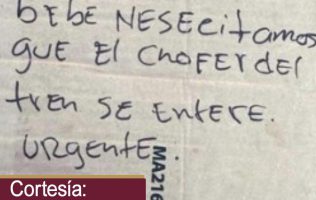 bEbE NESECitamos
quE El ChoFER dEl
trEn SE EntERE.
URgEntE.
MA216
Cortesía: